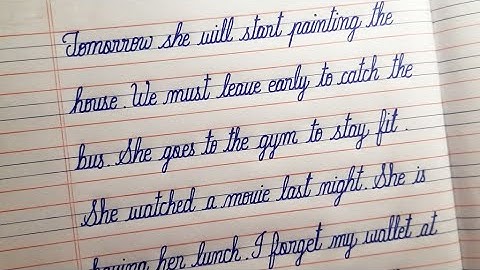 Tomorrow she will start painting the
house. We must leave early to catch the
bus. She goes to the gym to stay fit.
She watched a movie last night. She is
having her lunch. I forget my wallet at